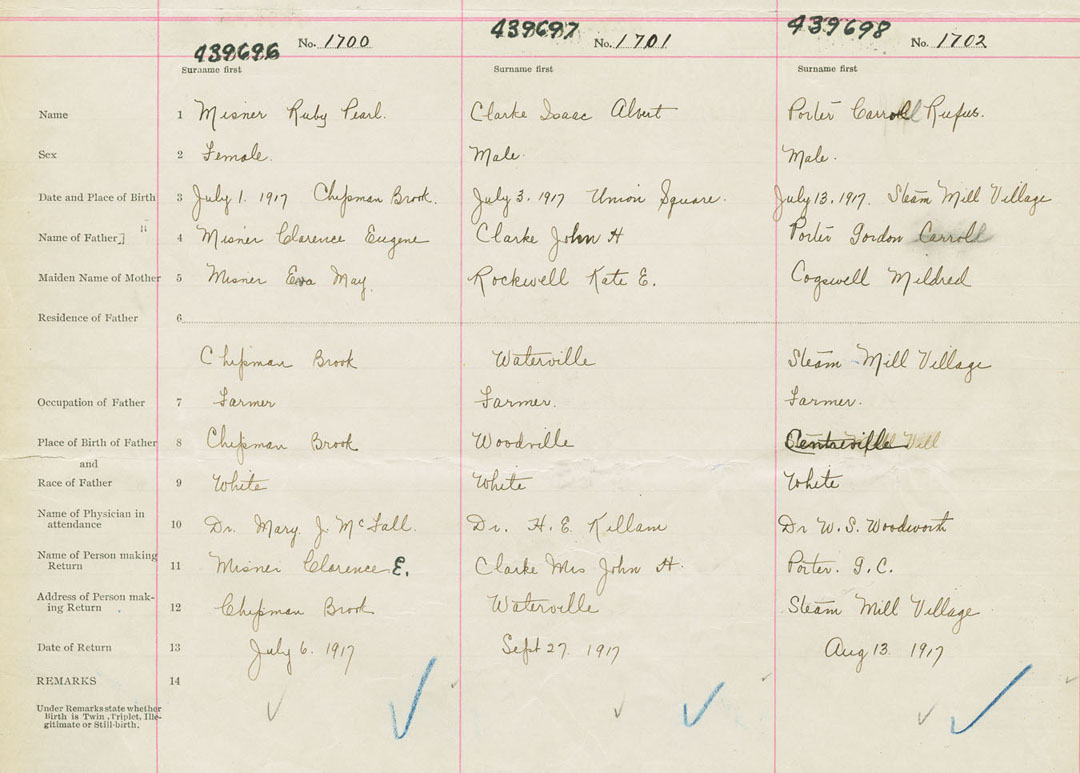 439696 No. 1700 439697 No. 1701 439698 No. 1702
Surname first Surname first Surname first
Name 1 Misner Ruby Pearl. Clarke Isaac Albert Porter Carroll Rufus.
Sex 2 Female. Male. Male.
Date and Place of Birth 3 July 1. 1917 Chipman Brook. July 3. 1917 Union Square. July 13. 1917. Steam Mill Village
Name of Father 4 Misner Clarence Eugene Clarke John H Porter Gordon Carroll
Maiden Name of Mother 5 Misner Eva May. Rockwell Kate E. Cogswell Mildred
Residence of Father 6
Chipman Brook Waterville Steam Mill Village
Occupation of Father 7 Farmer Farmer. Farmer.
Place of Birth of Father 8 Chipman Brook Woodville Centreville
and
Race of Father 9 White White White
Name of Physician in
attendance 10 Dr. Mary. J. McFall. Dr. H. E. Killam Dr W. S. Woodworth
Name of Person making
Return 11 Misner Clarence E. Clarke Mrs John H. Porter. G. C.
Address of Person mak-
ing Return 12 Chipman Brook Waterville Steam Mill Village
Date of Return 13 July 6. 1917 Sept 27 1917 Aug 13 1917
REMARKS 14
Under Remarks state whether
Birth is Twin, Triplet, Ille-
gitimate or Still-birth.